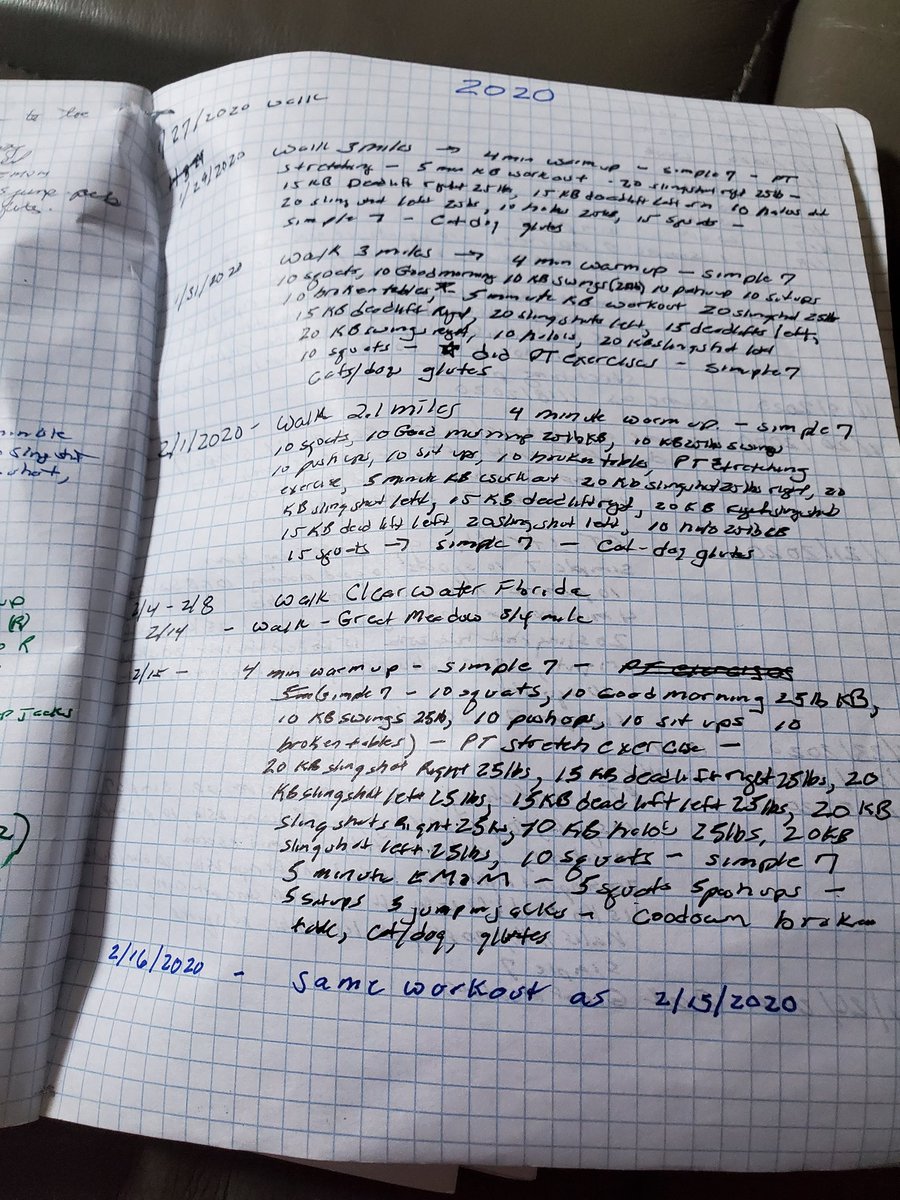 2020
27/2020 walk
1/29/2020 walk 3 miles → 4 min warmup - simple 7 - PT
stretching - 5 min KB workout - 20 slingshot right 25lb -
15 KB Deadlift right 25lb, 15 KB deadlift left 10 halos
20 slingshot left 25lb, 10 halos 25lb, 15 squats -
simple 7 - Cat dog glutes
1/31/2020 walk 3 miles → 4 min warmup - simple 7
10 squats, 10 Good morning 10 KB swings (25lb) 10 pushup 10 situps
10 broken tables, - 5 minute KB workout 20 slingshot 25lb
15 KB deadlift Right, 20 slingshots left, 15 deadlifts left,
20 KB swings right, 10 halos, 20 KB slingshot left
10 squats - ☆ did PT exercises - simple 7
Cats/dog glutes
2/1/2020 - walk 2.1 miles 4 minute warm up - simple 7
10 squats, 10 Good morning 25lb KB, 10 KB 25lb swings
10 push ups, 10 sit ups, 10 broken tables, PT Stretching
exercise, 5 minute KB workout 20 KB slingshot 25 lbs right, 20
KB slingshot left, 15 KB deadlift right, 20 KB slingshots
15 KB dead lift left, 20 slingshot left, 10 halo 25lb KB
15 squats → simple 7 - Cat-dog glutes
2/4 - 2/8 walk Clearwater Florida
2/14 - walk - Great Meadow 3/4 mile
2/15 - 4 min warmup - simple 7 - PT exercises
5m (simple 7 - 10 squats, 10 Good morning 25lb KB,
10 KB swings 25lb, 10 pushops, 10 sit ups 10
broken tables) - PT stretch exercise -
20 KB slingshot Right 25lbs, 15 KB deadlift right 25lbs, 20
KB slingshot left 25lbs, 15 KB dead lift left 25lbs, 20 KB
slingshots Right 25lbs, 10 KB halos 25lbs, 20KB
slingshot left 25lbs, 10 squats - simple 7
5 minute EMOM - 5 squats 5 pushups -
5 situps 5 jumping jacks - Coodown broken
table, cat/dog, glutes
2/16/2020 - same workout as 2/15/2020